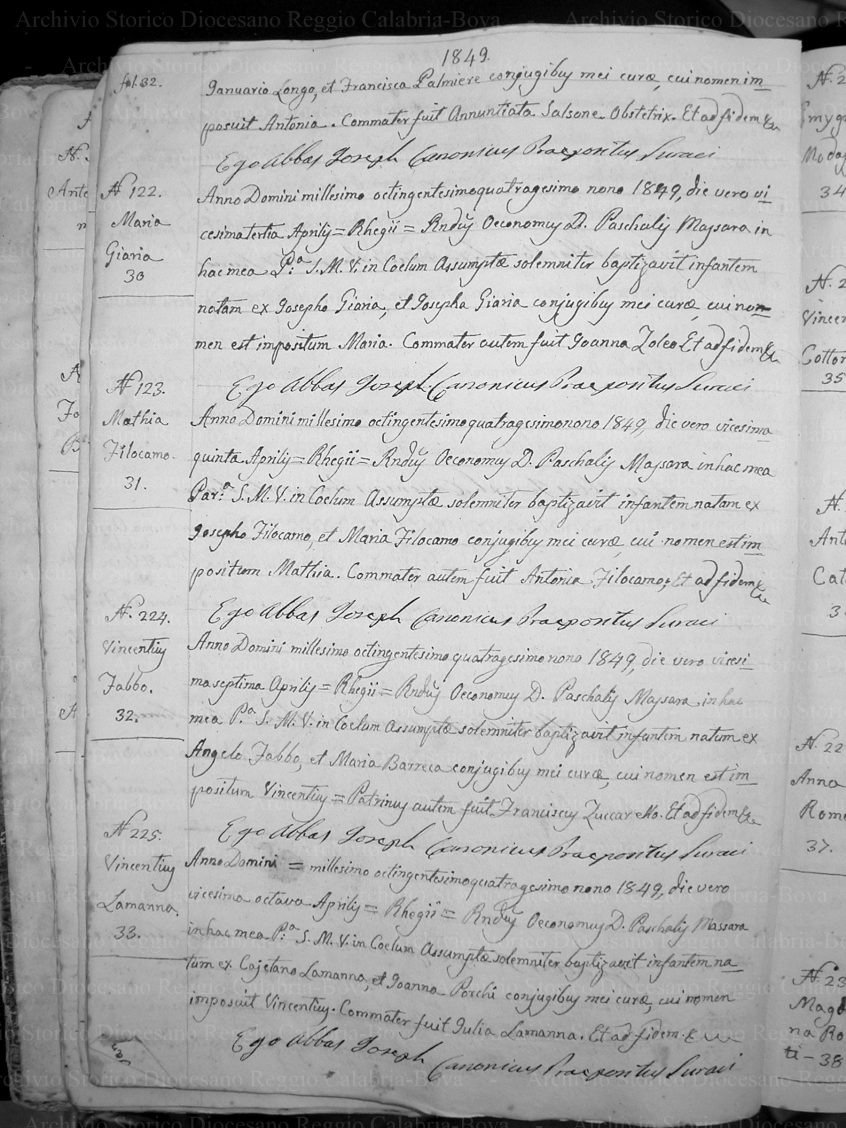 Archivio Storico Diocesano Reggio Calabria-Bova
1849.
fol. 32.
Januario Longo, et Francisca Palmiere conjugibus mei curæ, cui nomen im=
posuit Antonia. Commater fuit Annuntiata Salsone Obstetrix. Et ad fidem &a
Ego Abbas Joseph Canonicus Praepositus Suraci
N. 122.
Maria
Giaria
30
Anno Domini millesimo octingentesimo quatragesimo nono 1849, die vero vi=
cesima tertia Aprilis = Rhegii = Rndus Oeconomus D. Paschalis Massara in
hac mea P.a S. M. V. in Coelum Assumptæ solemniter baptizavit infantem
natam ex Josepho Giaria, et Josepha Giaria conjugibus mei curæ, cui no=
men est impositum Maria. Commater autem fuit Joanna Zoleo Et ad fidem &a
Ego Abbas Joseph Canonicus Praepositus Suraci
N. 123.
Mathia
Filocamo.
31.
Anno Domini millesimo octingentesimo quatragesimo nono 1849, die vero vicesima
quinta Aprilis = Rhegii = Rndus Oeconomus D. Paschalis Massara in hac mea
Par.a S. M. V. in Coelum Assumptæ solemniter baptizavit infantem natam ex
Josepho Filocamo, et Maria Filocamo conjugibus mei curæ, cui nomen est im=
positum Mathia. Commater autem fuit Antonia Filocamo; Et ad fidem &a
Ego Abbas Joseph Canonicus Praepositus Suraci
N. 224.
Vincentius
Fabbo.
32.
Anno Domini millesimo octingentesimo quatragesimo nono 1849, die vero vicesi=
ma septima Aprilis = Rhegii = Rndus Oeconomus D. Paschalis Massara in hac
mea P.a S. M. V. in Coelum Assumptæ solemniter baptizavit infantem natum ex
Angelo Fabbo, et Maria Barreca conjugibus mei curæ, cui nomen est im=
positum Vincentius = Patrinus autem fuit Franciscus Zuccarello. Et ad fidem &a
Ego Abbas Joseph Canonicus Praepositus Suraci
N. 225.
Vincentius
Lamanna.
33.
Anno Domini = millesimo octingentesimo quatragesimo nono 1849, die vero
vicesima octava Aprilis = Rhegii = Rndus Oeconomus D. Paschalis Massara
in hac mea P.a S. M. V. in Coelum Assumptæ solemniter baptizavit infantem na=
tum ex Cajetano Lamanna, et Joanna Porchi conjugibus mei curæ, cui nomen
imposuit Vincentius. Commater fuit Julia Lamanna. Et ad fidem &
Ego Abbas Joseph Canonicus Praepositus Suraci